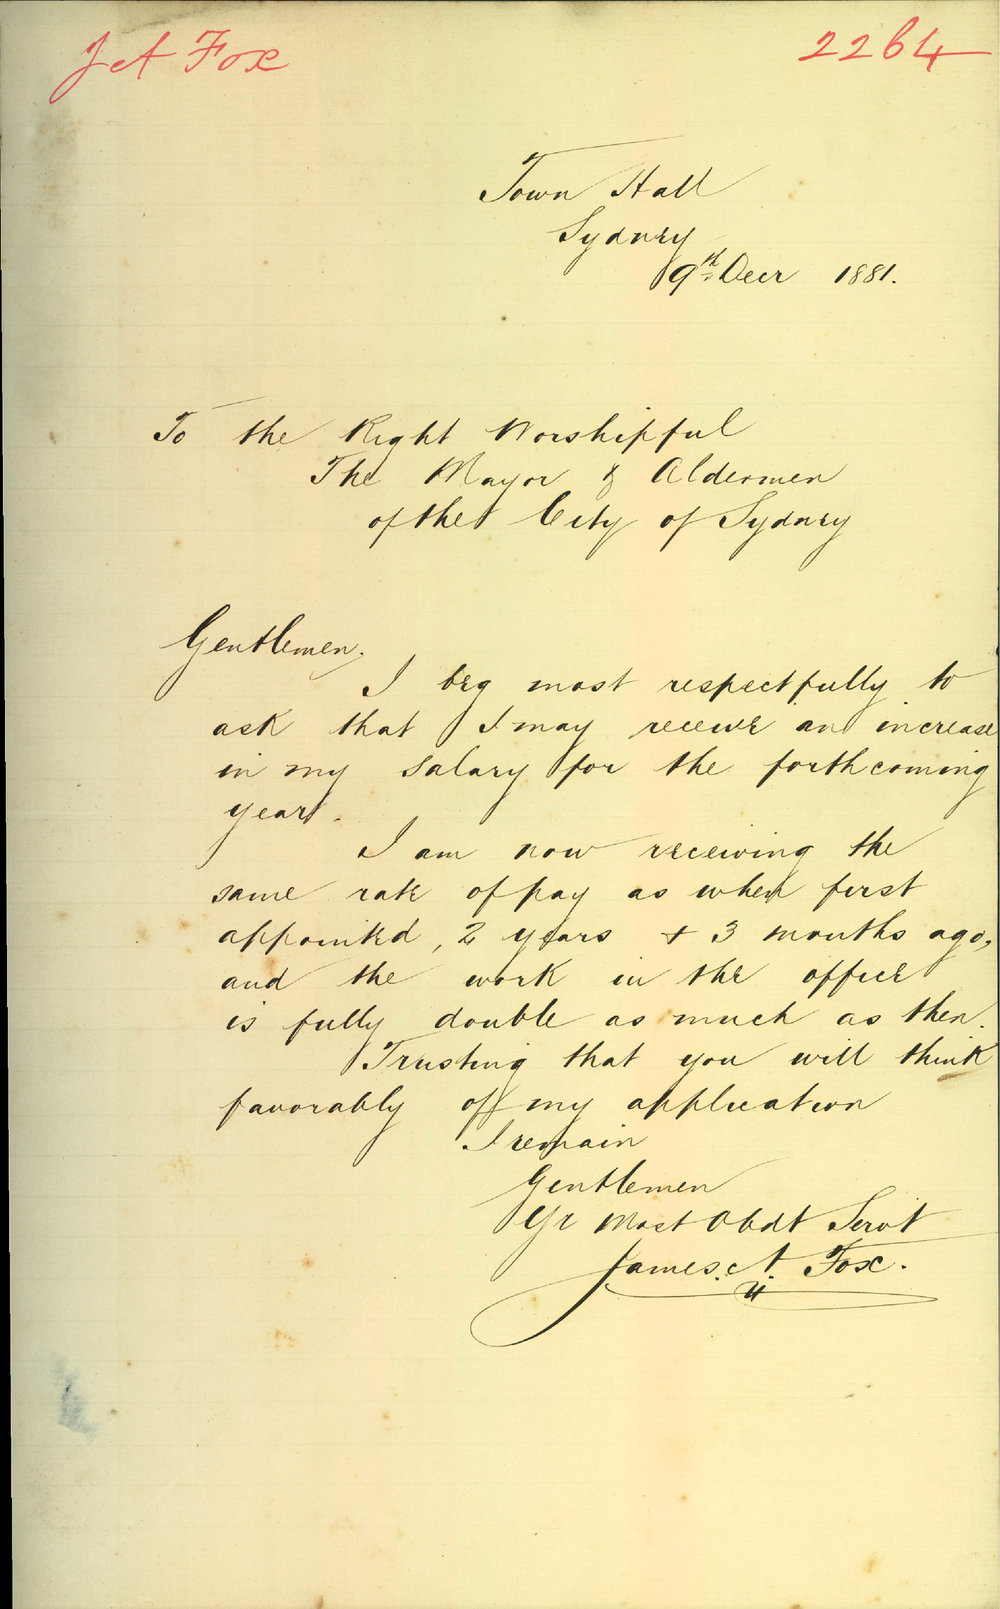 J A Fox
2264
Town Hall
Sydney
9th Decr 1881.
To the Right Worshipful
The Mayor & Aldermen
of the City of Sydney
Gentlemen.
I beg most respectfully to
ask that I may receive an increase
in my salary for the forthcoming
year.
I am now receiving the
same rate of pay as when first
appointed, 2 years + 3 months ago,
and the work in the office
is fully double as much as then.
Trusting that you will think
favorably of my application
I remain
Gentlemen
Yr Most Obdt Servt
James. A. Fox.